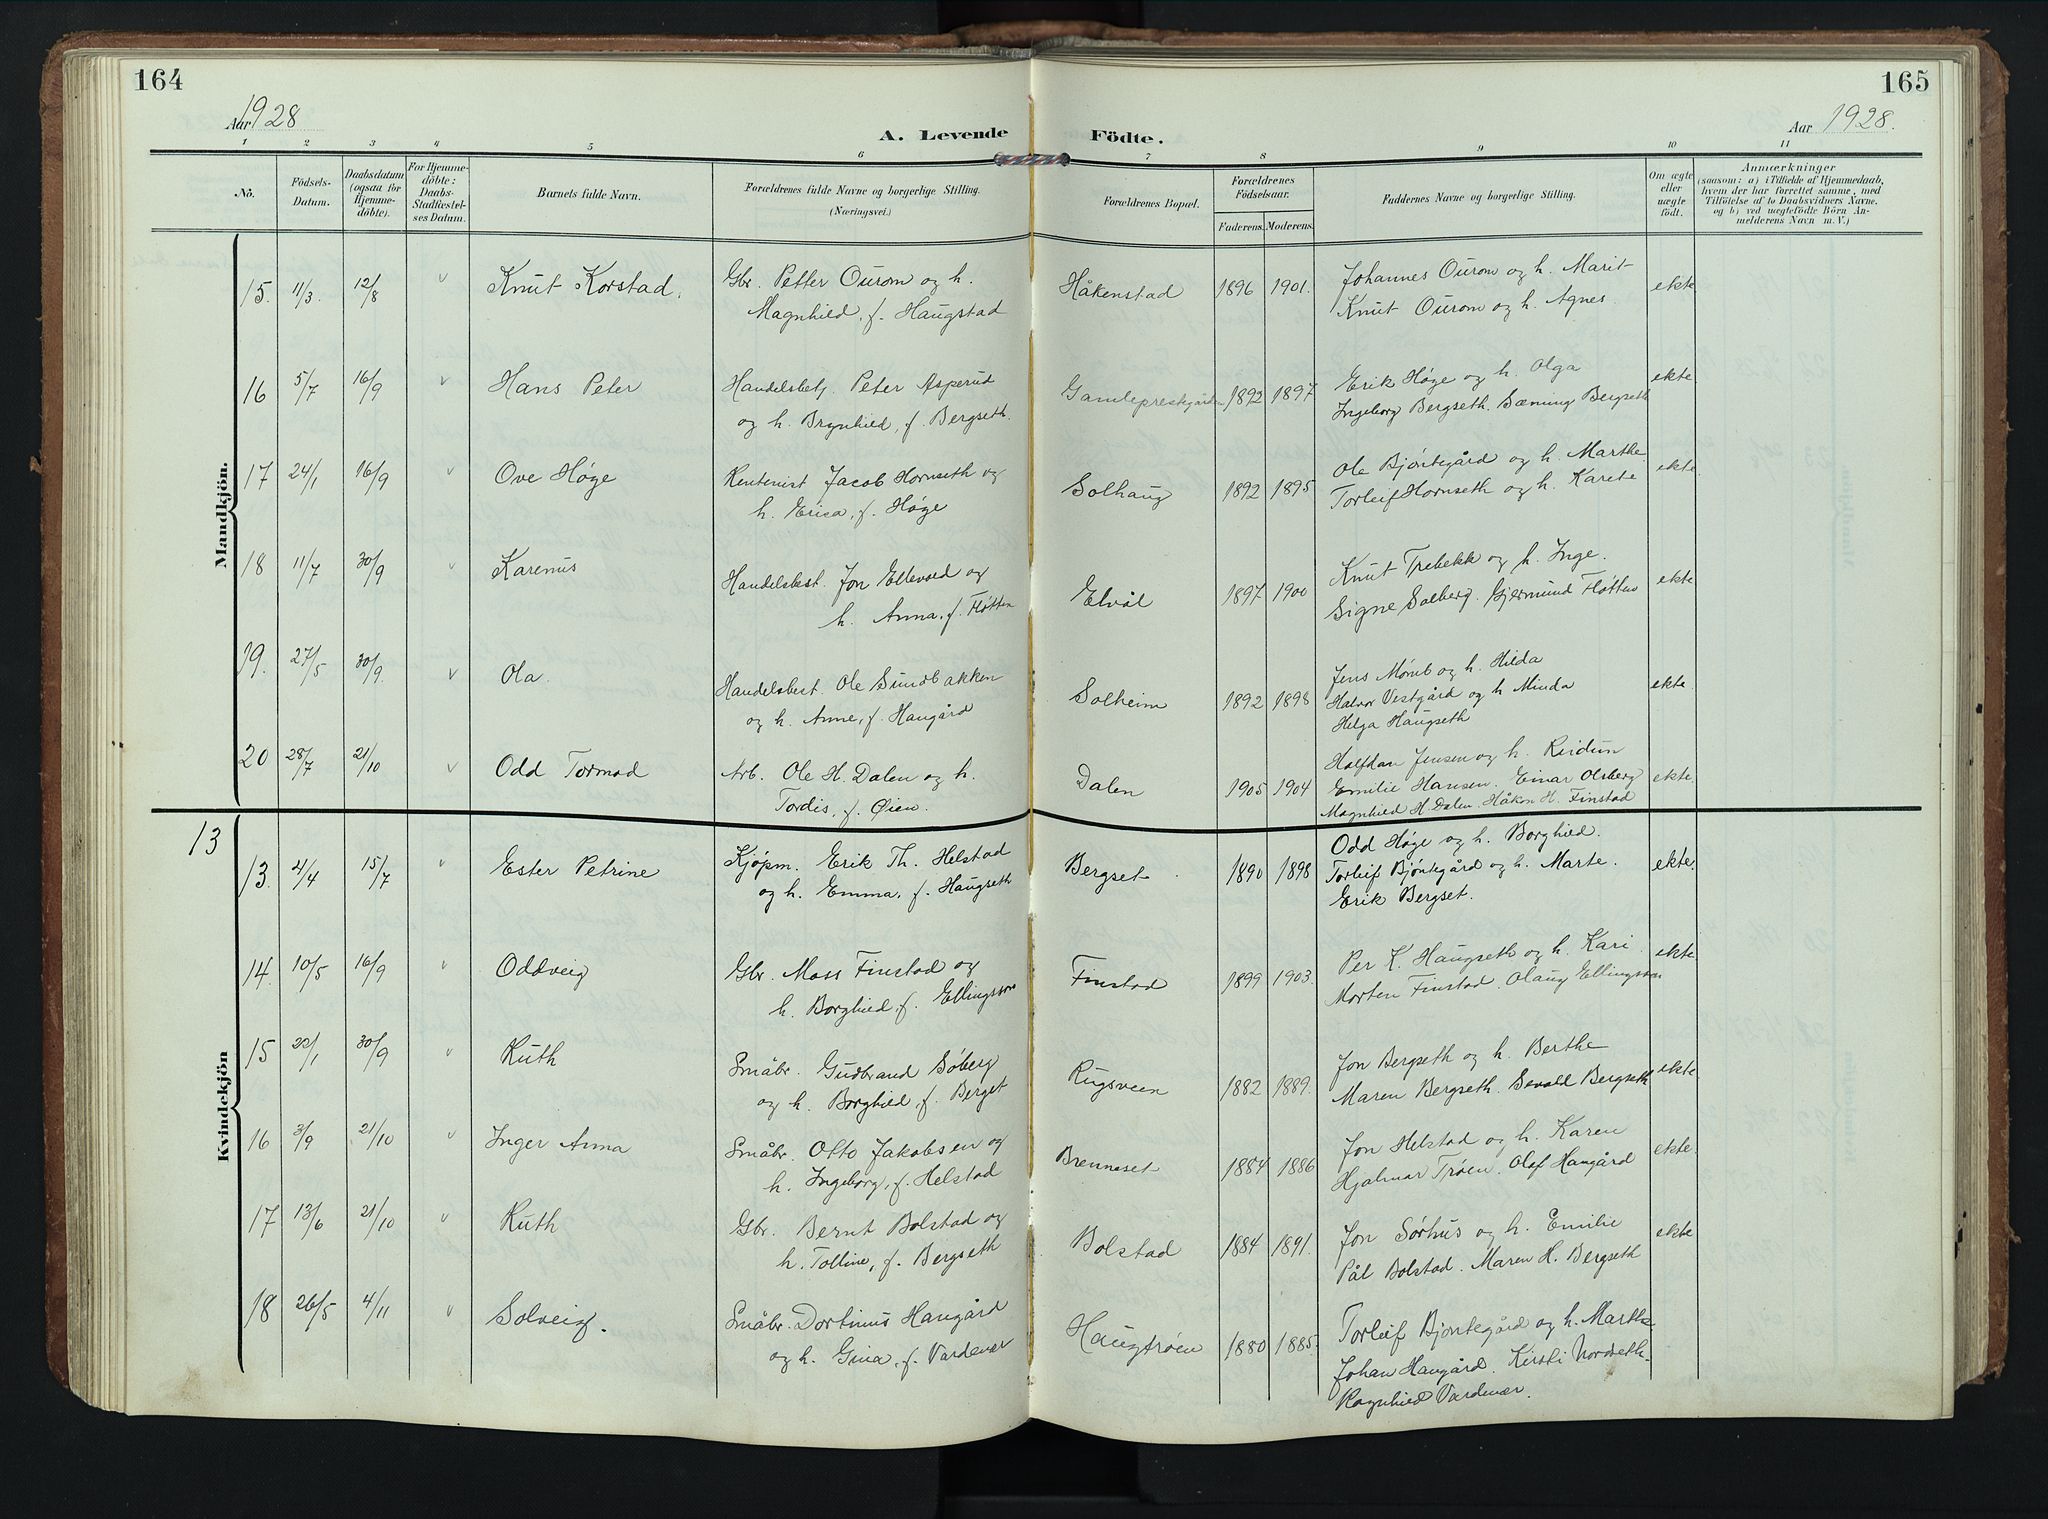 164
165
Aar 1928
A. Levende Födte.
Aar 1928.
1 2 3 4 5 6 7 8 9 10 11
Nö.
Födsels-Datum.
Daabsdatum (ogsaa for Hjemmedöbte).
For Hjemmedöbte: Daabs-Stadfæstelses Datum.
Barnets fulde Navn.
Forældrenes fulde Navne og borgerlige Stilling. (Næringsvei.)
Forældrenes Bopæl.
Forældrenes Födselsaar.
Faderens. Moderens.
Faddernes Navne og borgerlige Stilling.
Om ægte eller uægte födt.
Anmærkninger
(saasom: a) i Tilfælde af Hjemmedaab, hvem der har forrettet samme, med Tilföielse af to Daabsvidners Navne, og b) ved uegtefödte Börn Anmelderens Navn m. V.)
Mandkjön.
15. 11/3. 12/8 v Knut Korstad. Gbr. Petter Ourom og h. Magnhild, f. Haugstad Håkenstad 1896 1901. Johannes Ourom og h. Marit- Knut Ourom og h. Agnes. ekte
16 5/7 16/9 v Hans Peter Handelsbetj. Peter Asperud og h. Brynhild, f. Bergseth. Gamleprestgården 1892 1897 Erik Høge og h. Olga Ingeborg Bergseth. Sæming Bergseth ekte
17 24/1 16/9 v Ove Høge Rentenist Jacob Hornseth og h. Erica, f. Høge Solhaug 1892 1895 Ole Bjøntegård og h. Marthe. Torleif Hornseth og h. Karete ekte.
18 11/7 30/9 v Karenus Handelsbest. Jon Ellevold og h. Anna, f. Fløtten Elvål 1897 1900 Knut Trebekk og h. Inge. Signe Solberg. Gjermund Fløtten ekte
19. 27/5 30/9. v Ola. Handelsbest. Ole Sundbakken og h. Anne, f. Haugård Solheim 1892 1898 Jens Momb og h. Hilda Halvor Vestgård og h Minda Helga Haugseth ekte.
20 28/7 21/10 v Odd Tormod Arb. Ole H. Dalen og h. Tordis, f. Øien. Dalen 1905 1904 Halfdan Jensen og h. Reidun Emilie Hansen. Einar Olsberg Magnhild H. Dalen. Håkon H. Finstad ekte.
13
Kvindekjön
13. 21/4 15/7 v Ester Petrine Kjøpm. Erik Th. Helstad og h. Emma, f. Haugseth Bergset. 1890 1898 Odd Høge og h. Borghild. Torleif Bjøntegård og h. Marte. Erik Bergset. ekte.
14. 10/5 16/9 v Oddveig Gbr. Moss Finstad og h. Borghild, f. Ellingssen Finstad 1899 1903. Per K. Haugseth og h. Kari. Morten Finstad. Olaug Ellingssen ekte.
15 22/1 30/9 v Ruth Småbr. Gudbrand Søberg og h. Borghild, f. Berget Rugsveen 1882 1889. Jon Bergseth og h. Berthe Maren Bergseth. Sevald Bergseth ekte.
16 3/9 21/10 v Inger Anna Småbr. Otto Jakobsen og h. Ingeborg, f. Helstad Brenneset 1884 1886 Jon Helstad og h. Karen Hjalmar Trøen. Olaf Haugård ekte.
17 13/6 21/10 v Ruth Gbr. Bernt Bolstad og h. Tolline, f. Bergseth Bolstad 1884 1891. Jon Sørhus og h. Emilie Pål Bolstad. Maren H. Bergseth ekte
18 26/5 4/11 v Solveig. Småbr. Dortinus Haugård og h. Gina, f. Vardenær Haugtrøen 1880 1885. Torleif Bjøntegård og h. Marthe Johan Haugård. Kirsti Nordseth. Ragnhild Vardenær.